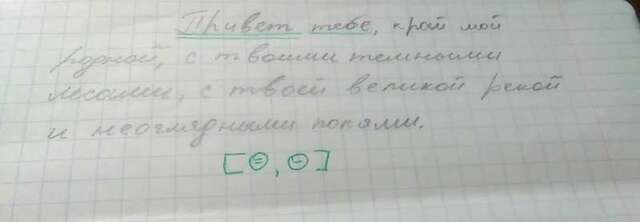 Привет тебе, край мой
родной, с твоими темными
лесами, с твоей великой рекой
и неоглядными полями.
[⊖, ⊖]